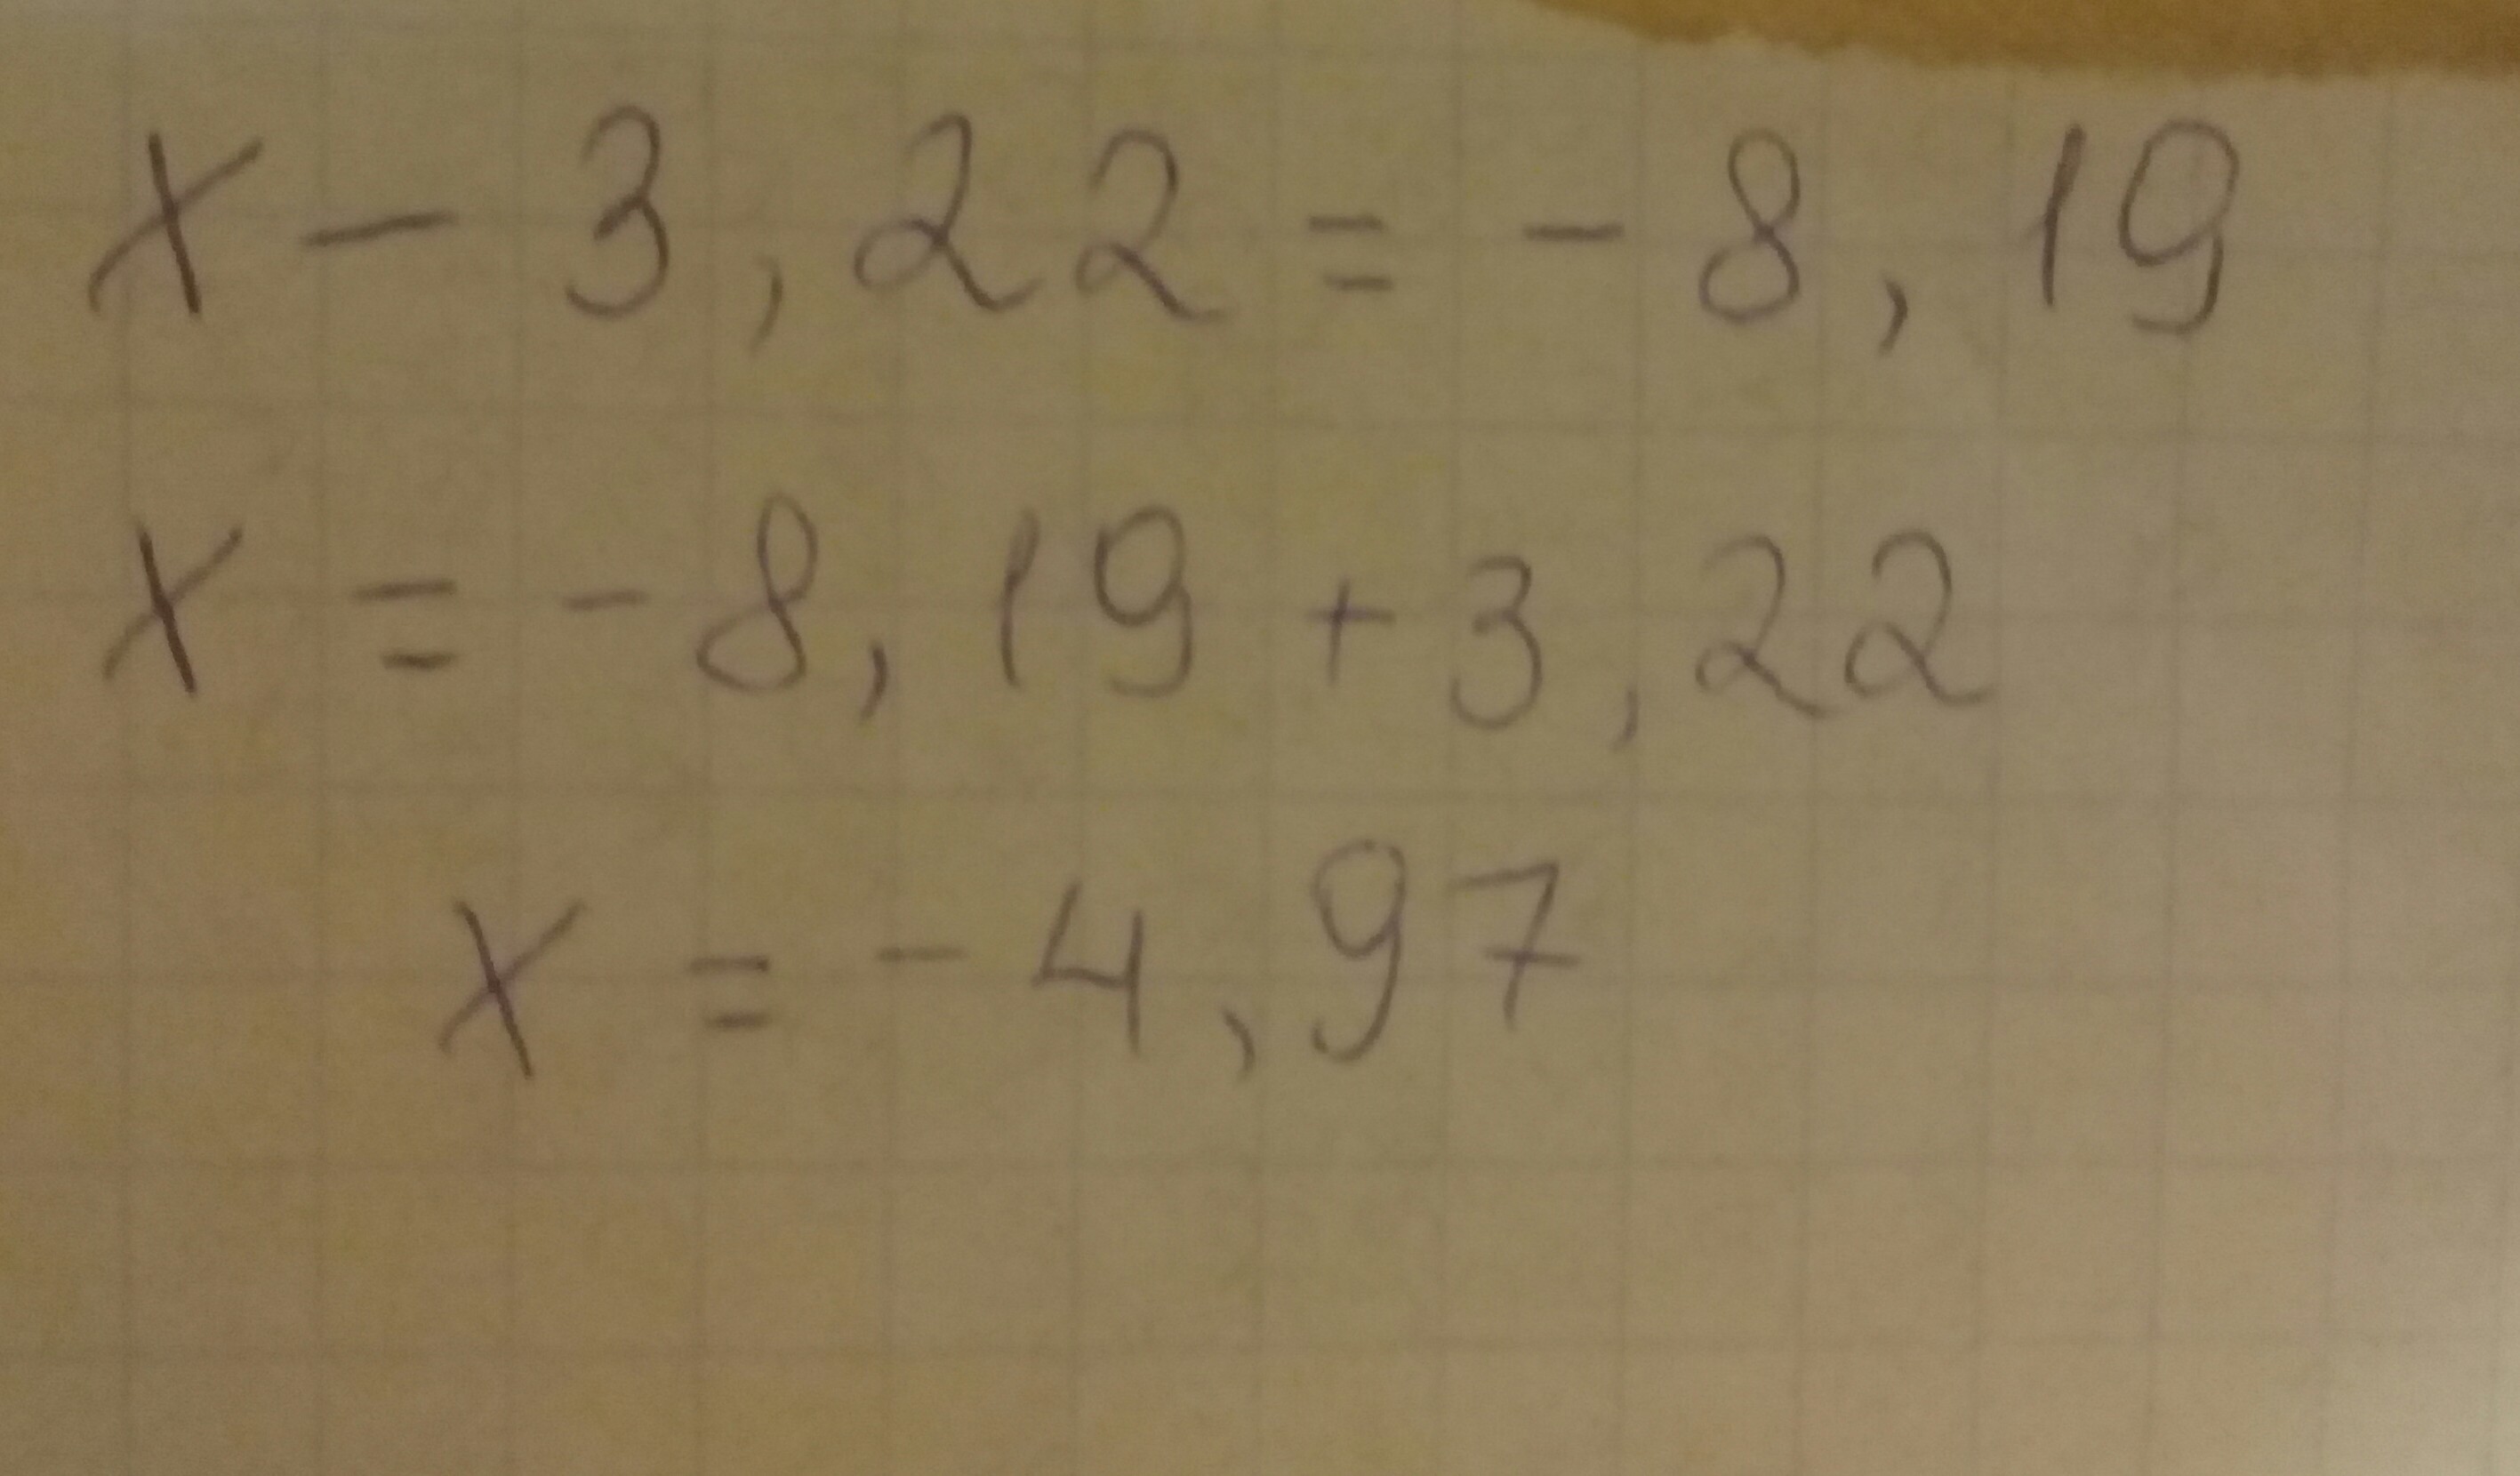 x - 3,22 = - 8,19
x = - 8,19 + 3,22
x = - 4,97